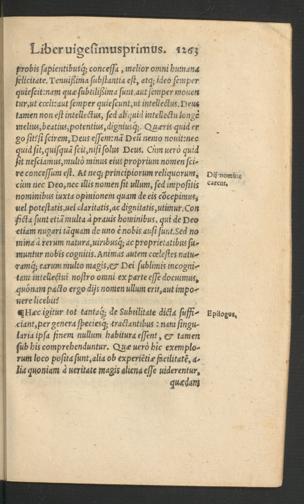 Liber uigesimusprimus. 1263
probis sapientibusq́; concessa, melior omni humana
felicitate. Tenuißima substantia est, atq; ideo semper
quiescit: nam quæ subtilißima sunt, aut semper mouen
tur, ut cœli: aut semper quiescunt, ut intellectus. Deus
tamen non est intellectus, sed aliquid intellectu longè
melius, beatius, potentius, digniusq́;. Quæris quid er
go sit? si scirem, Deus essem: nā Deū nemo nouit: nec
quid sit, quisquā scit, nisi solus Deus. Cùm uerò quid
sit nesciamus, multò minus eius proprium nomen sci-
re concessum est. At neq; principiorum reliquorum,
cùm nec Deo, nec illis nomen sit ullum, sed impositis
nominibus iuxta opinionem quam de eis cōcepimus,
uel potestatis, uel claritatis, ac dignitatis, utimur. Con
ficta sunt etiā multa à prauis hominibus, qui de Deo
etiam nugari tāquam de uno è nobis ausi sunt. Sed no
mina à rerum natura, uiribusq́; ac proprietatibus su-
muntur nobis cognitis. Animas autem cœlestes natu-
ramq́; earum multo magis, & Dei sublimis incogni-
tam intellectui nostro omni ex parte esse docuimus,
quónam pacto ergo dijs nomen ullum erit, aut impo-
nere licebit?
Dij nomine
carent.
¶ Hæc igitur tot tantaq́; de Subtilitate dicta suffi-
ciant, per genera speciesq́; tractantibus: nam singu-
laria ipsa finem nullum habitura essent, & tamen
sub his comprehenduntur. Quæ uerò hîc exemplo-
rum loco posita sunt, alia ob experiētiæ facilitatē, a-
lia quoniam à ueritate magis aliena esse uiderentur,
quædam
Epilogus.